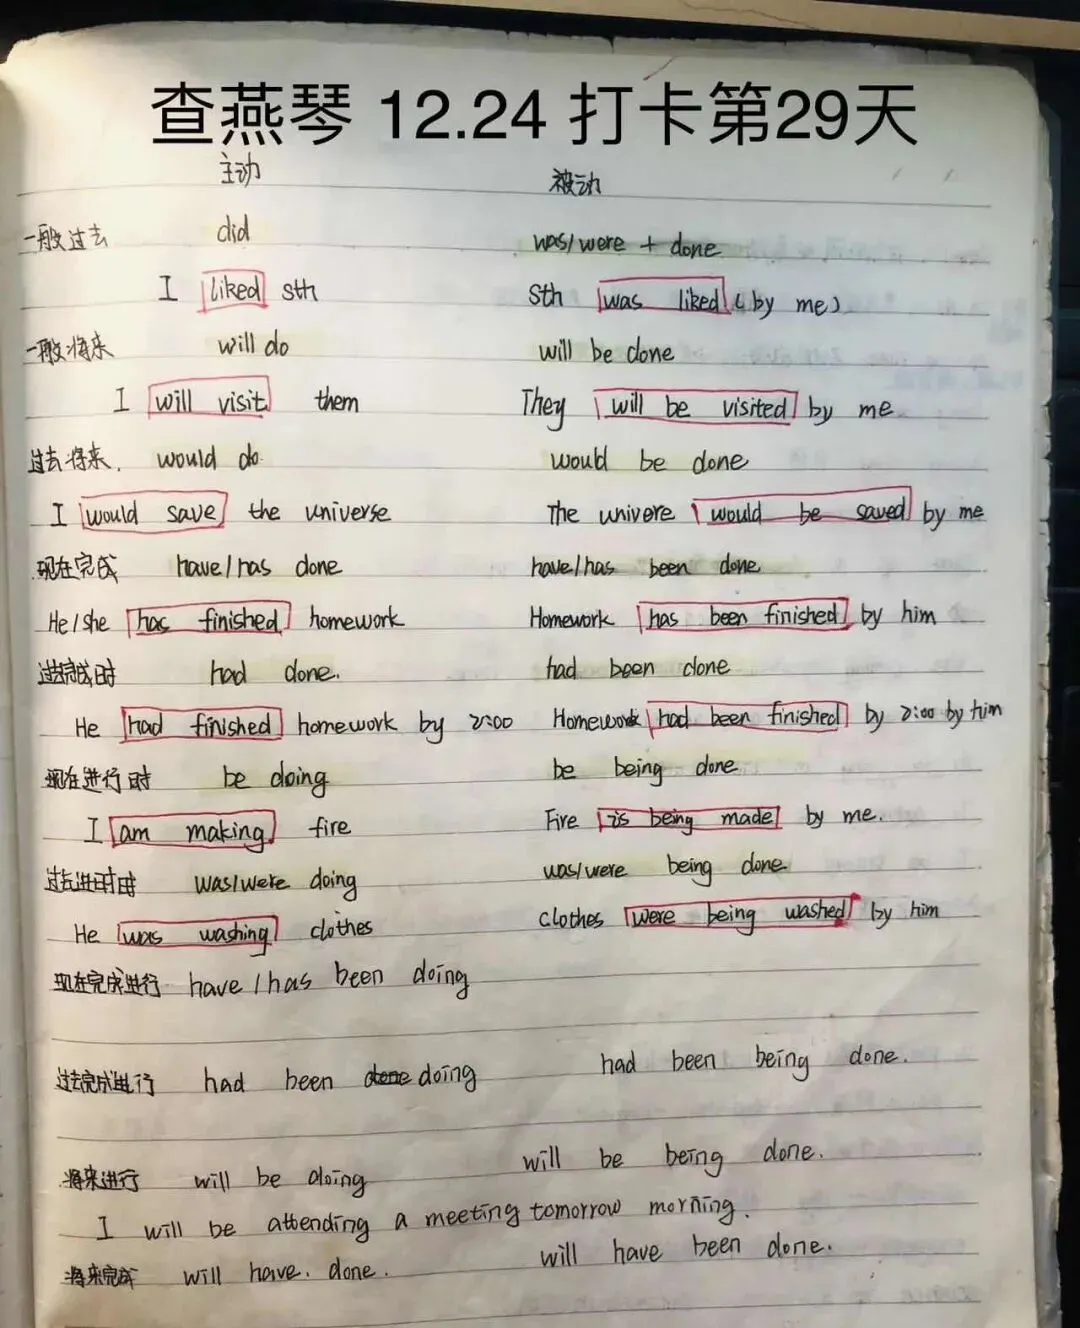 查燕琴 12.24 打卡第29天
主动 被动
一般过去 did was/were + done
I liked sth sth was liked (by me)
一般将来 will do will be done
I will visit them They will be visited by me
过去将来. would do would be done
I would save the universe The univere would be saved by me
现在完成 have/has done have/has been done
He/she has finished homework Homework has been finished by him
过去完成时 had done. had been done
He had finished homework by 2:00 Homework had been finished by 2:00 by him
现在进行时 be doing be being done
I am making fire Fire is being made by me.
was/were doing was/were being done
He was washing clothes clothes were being washed by him
现在完成进行 have/has been doing
过去完成进行 had been done doing had been being done.
将来进行 will be doing will be being done.
I will be attending a meeting tomorrow morning.
将来完成 will have. done. will have been done.